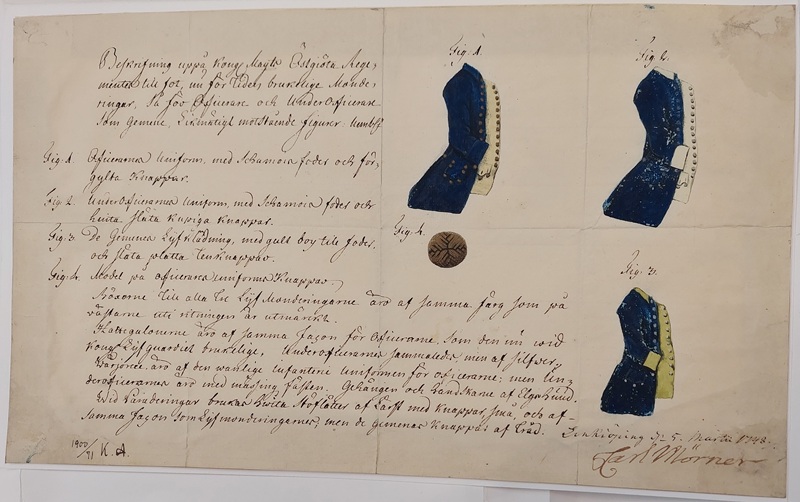 Beskrifning uppå Kongl. Mayts Östgiöta Rege-
mente till fot, nu för tiden brukelige Monde-
ringar, så för Officerare och UnderOfficerare
som Gemene, Likmätigt motstående figurer
Fig: 1. Officerarnes Uniform, med Schamois foder och för-
gylta Knappar.
Fig: 2. UnderOfficerarnes Uniform, med Schamois foder och
hvita släta kupiga Knappar.
Fig: 3 De Gemenes Lifklädning, med gult boy till foder,
och släta platta tenknappar.
Fig: 4. Model på Officerares uniforms Knappar.
Böxorne till alla tre Lifmonderingarne äro af samma färg som på
västarne uti ritningen är utmärkt.
Hattegalonerne äro af samma façon för Officerarne, som den nu wid
Kongl. Lifguardiet brukelige, Underofficerarnes sammaledes, men af silfwer.
Wärjorne äro af den wanlige Infanterie Uniformen för officerarne; men Un-
derofficerarnes äro med mässing fästen. Gehängen och handskarne af Elgshud.
Wid Paraderingar brukas hwita Stofletter af Lärft med Knappar små, och af
samma façon som Lifmonderingarnes, men de Gemenas Knappar af träd.
Linkiöping d. 5. Martii 1748.
Carl Mörner
1900/71 K. A.
Fig. 1.
Fig. 2.
Fig. 4.
Fig. 3.